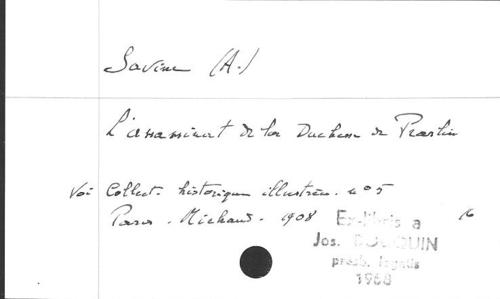 Savine (A.)
L'assassinat de la Duchesse de Praslin
Voi Collect. historique illustrée. n° 5
Paris. Michaud. 1908
16
Ex-libris a
Jos. BOUQUIN
presb. legatis
1968